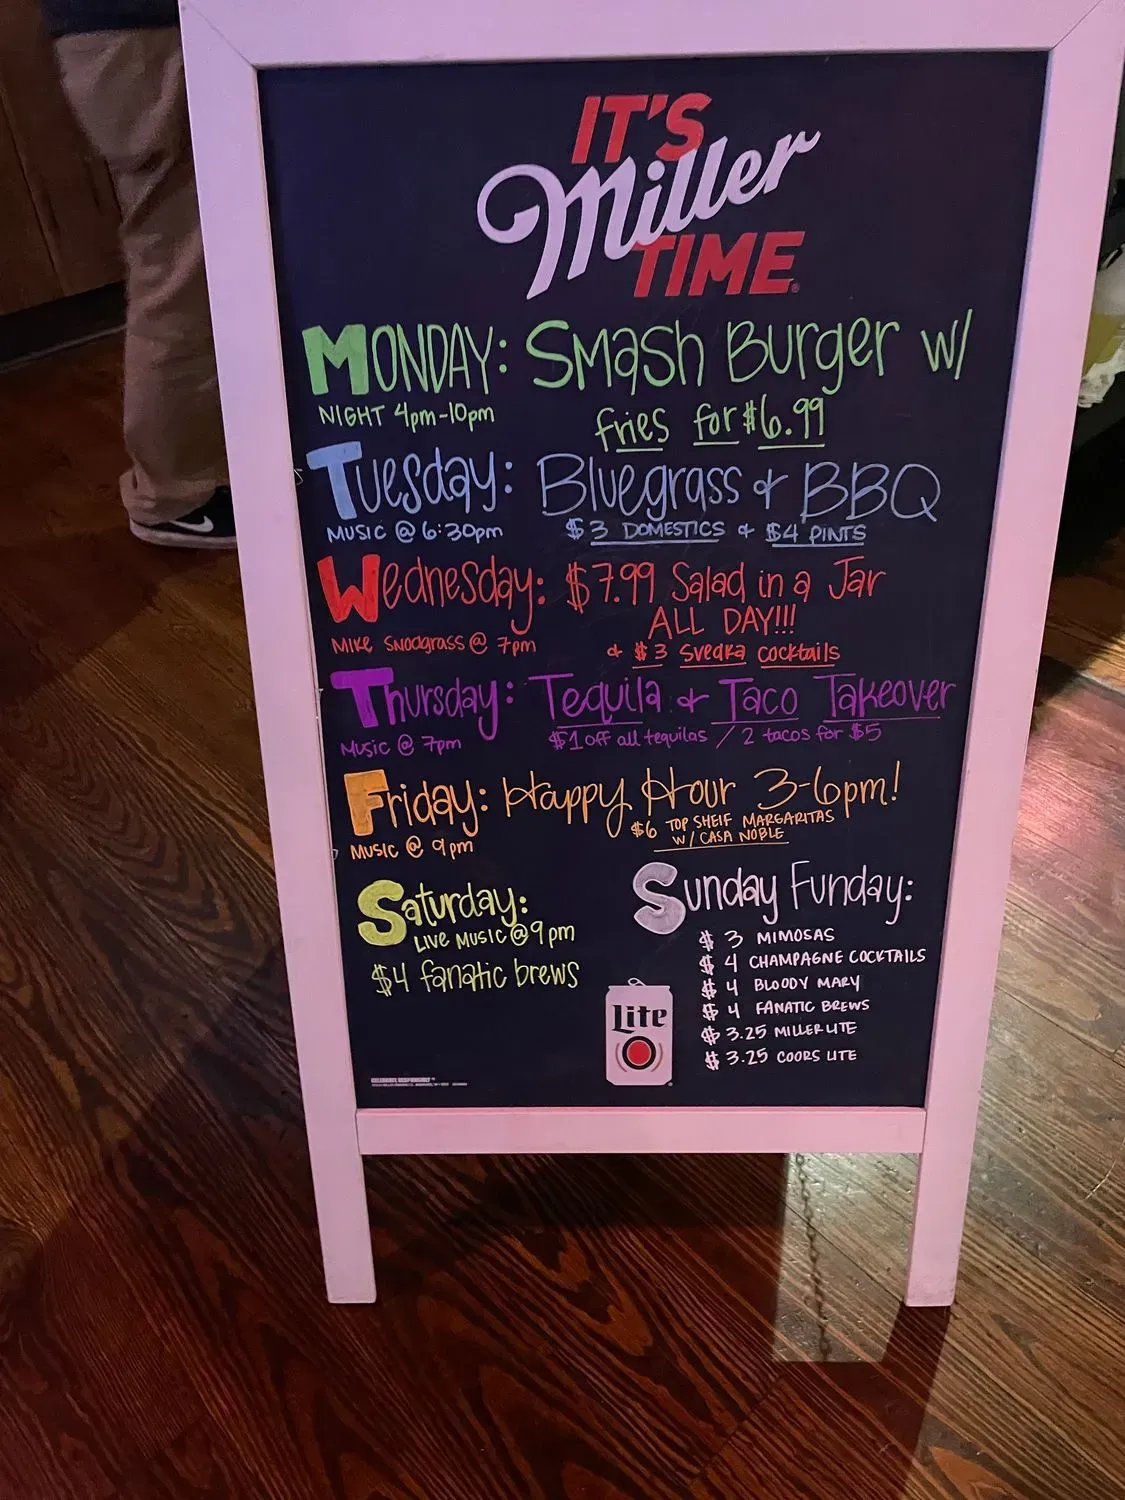 IT'S
Miller
TIME
MONDAY: Smash Burger w/
NIGHT 4pm-10pm
fries for $6.99
Tuesday: Bluegrass & BBQ
MUSIC @ 6:30pm
$3 DOMESTICS & $4 PINTS
Wednesday: $7.99 Salad in a Jar
ALL DAY!!!
MIKE SNODGRASS @ 7pm
& $3 Svedka cocktails
Thursday: Tequila & Taco Takeover
MUSIC @ 7pm
$1 off all tequilas / 2 tacos for $5
Friday: Happy Hour 3-6pm!
$6 TOP SHELF MARGARITAS
W/ CASA NOBLE
MUSIC @ 9pm
Saturday:
LIVE MUSIC @ 9pm
$4 fanatic brews
Sunday Funday:
$3 MIMOSAS
$4 CHAMPAGNE COCKTAILS
$4 BLOODY MARY
$4 FANATIC BREWS
$3.25 MILLER LITE
$3.25 COORS LITE
Lite